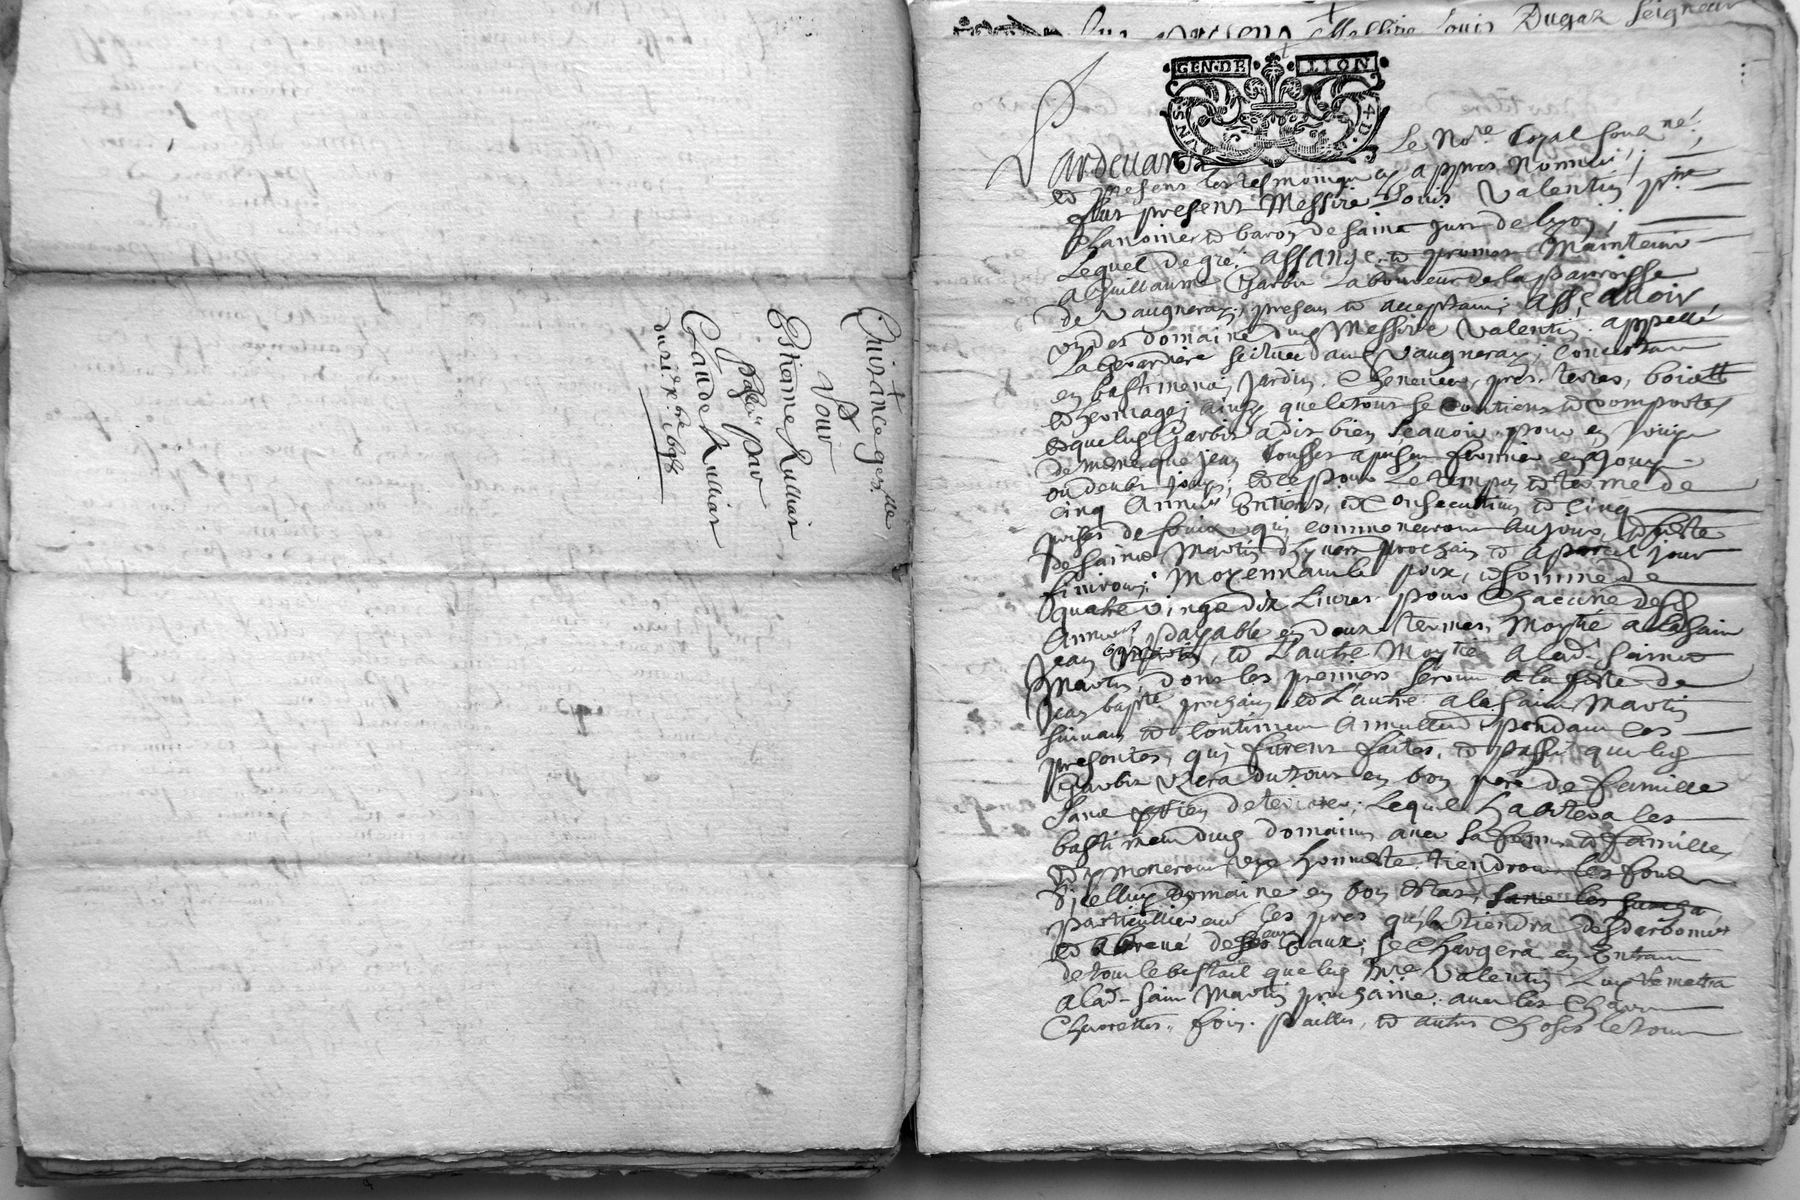 Quittance gen.lle
pour
Estienne Rulliat
par
Claude Rulliat
du 21.e x.bre 1698
Messire Louis Dugas Seigneur
GEN. DE LION
4 D.
Pardevant Le No.re Royal soubz.né
et presens les tesmoings apprès Nommés,
fut present Messire Louis Valentin p.tre
Chanoine et baron de saint Just de Lyon,
Lequel de gré, assange et promet Maintenir
a Guillaume Garbit Laboureur de la parroisse
de Vaugneray, present et acceptant, Assçavoir
Un des domaine dud. Messire Valentin appellé
La Gerardiere scitué aud. Vaugneray, Consistant
en bastimens, Jardin, Cheneviere, prés, terres, bois
et hermages, ainsy que le tout se Contient et comporte,
et que led. Garbit a dit bien sçavoir, pour en jouir
de mesme que Jean fermier en jouit
ou deubt jouir, et ce pour Le temps et terme de
cinq Années Entieres, et Consecutives et Cinq
prises de fruits, qui commenceront au jour, et feste
de saint Martin d'hyvert prochain et a pareil jour
finiront, Moyennant le prix, et somme de
quatre vingt dix Livres pour Chacune desd.
Années, payable en deux termes, Moytié a la saint
Jean, et L'autre Moytié a lad. saint
Martin, dont les premiers seront a la feste de
Jean baptiste prochain et L'autre a la saint Martin
suivant et Continuer annuellement pendant les
presentes, qui furent faites, et passé que led.
Garbit Usera du tout en bon pere de famille
sans rien deteriorer, Lequel habitera les
bastimens dud. domaine avec sa femme et famille,
et y meneront vye honneste tiendront les fonds
d'icelluy Domaine en bon Estat,
particullierement les prés qu'il tiendra
et abrevé de ses Eaux, se Chargera en Entrant
de tout le bestail que led. M.re Valentin Luy Remettra
a lad. saint Martin prochaine, avec les
Charrettes, foin, pailles, et autres Choses le tout